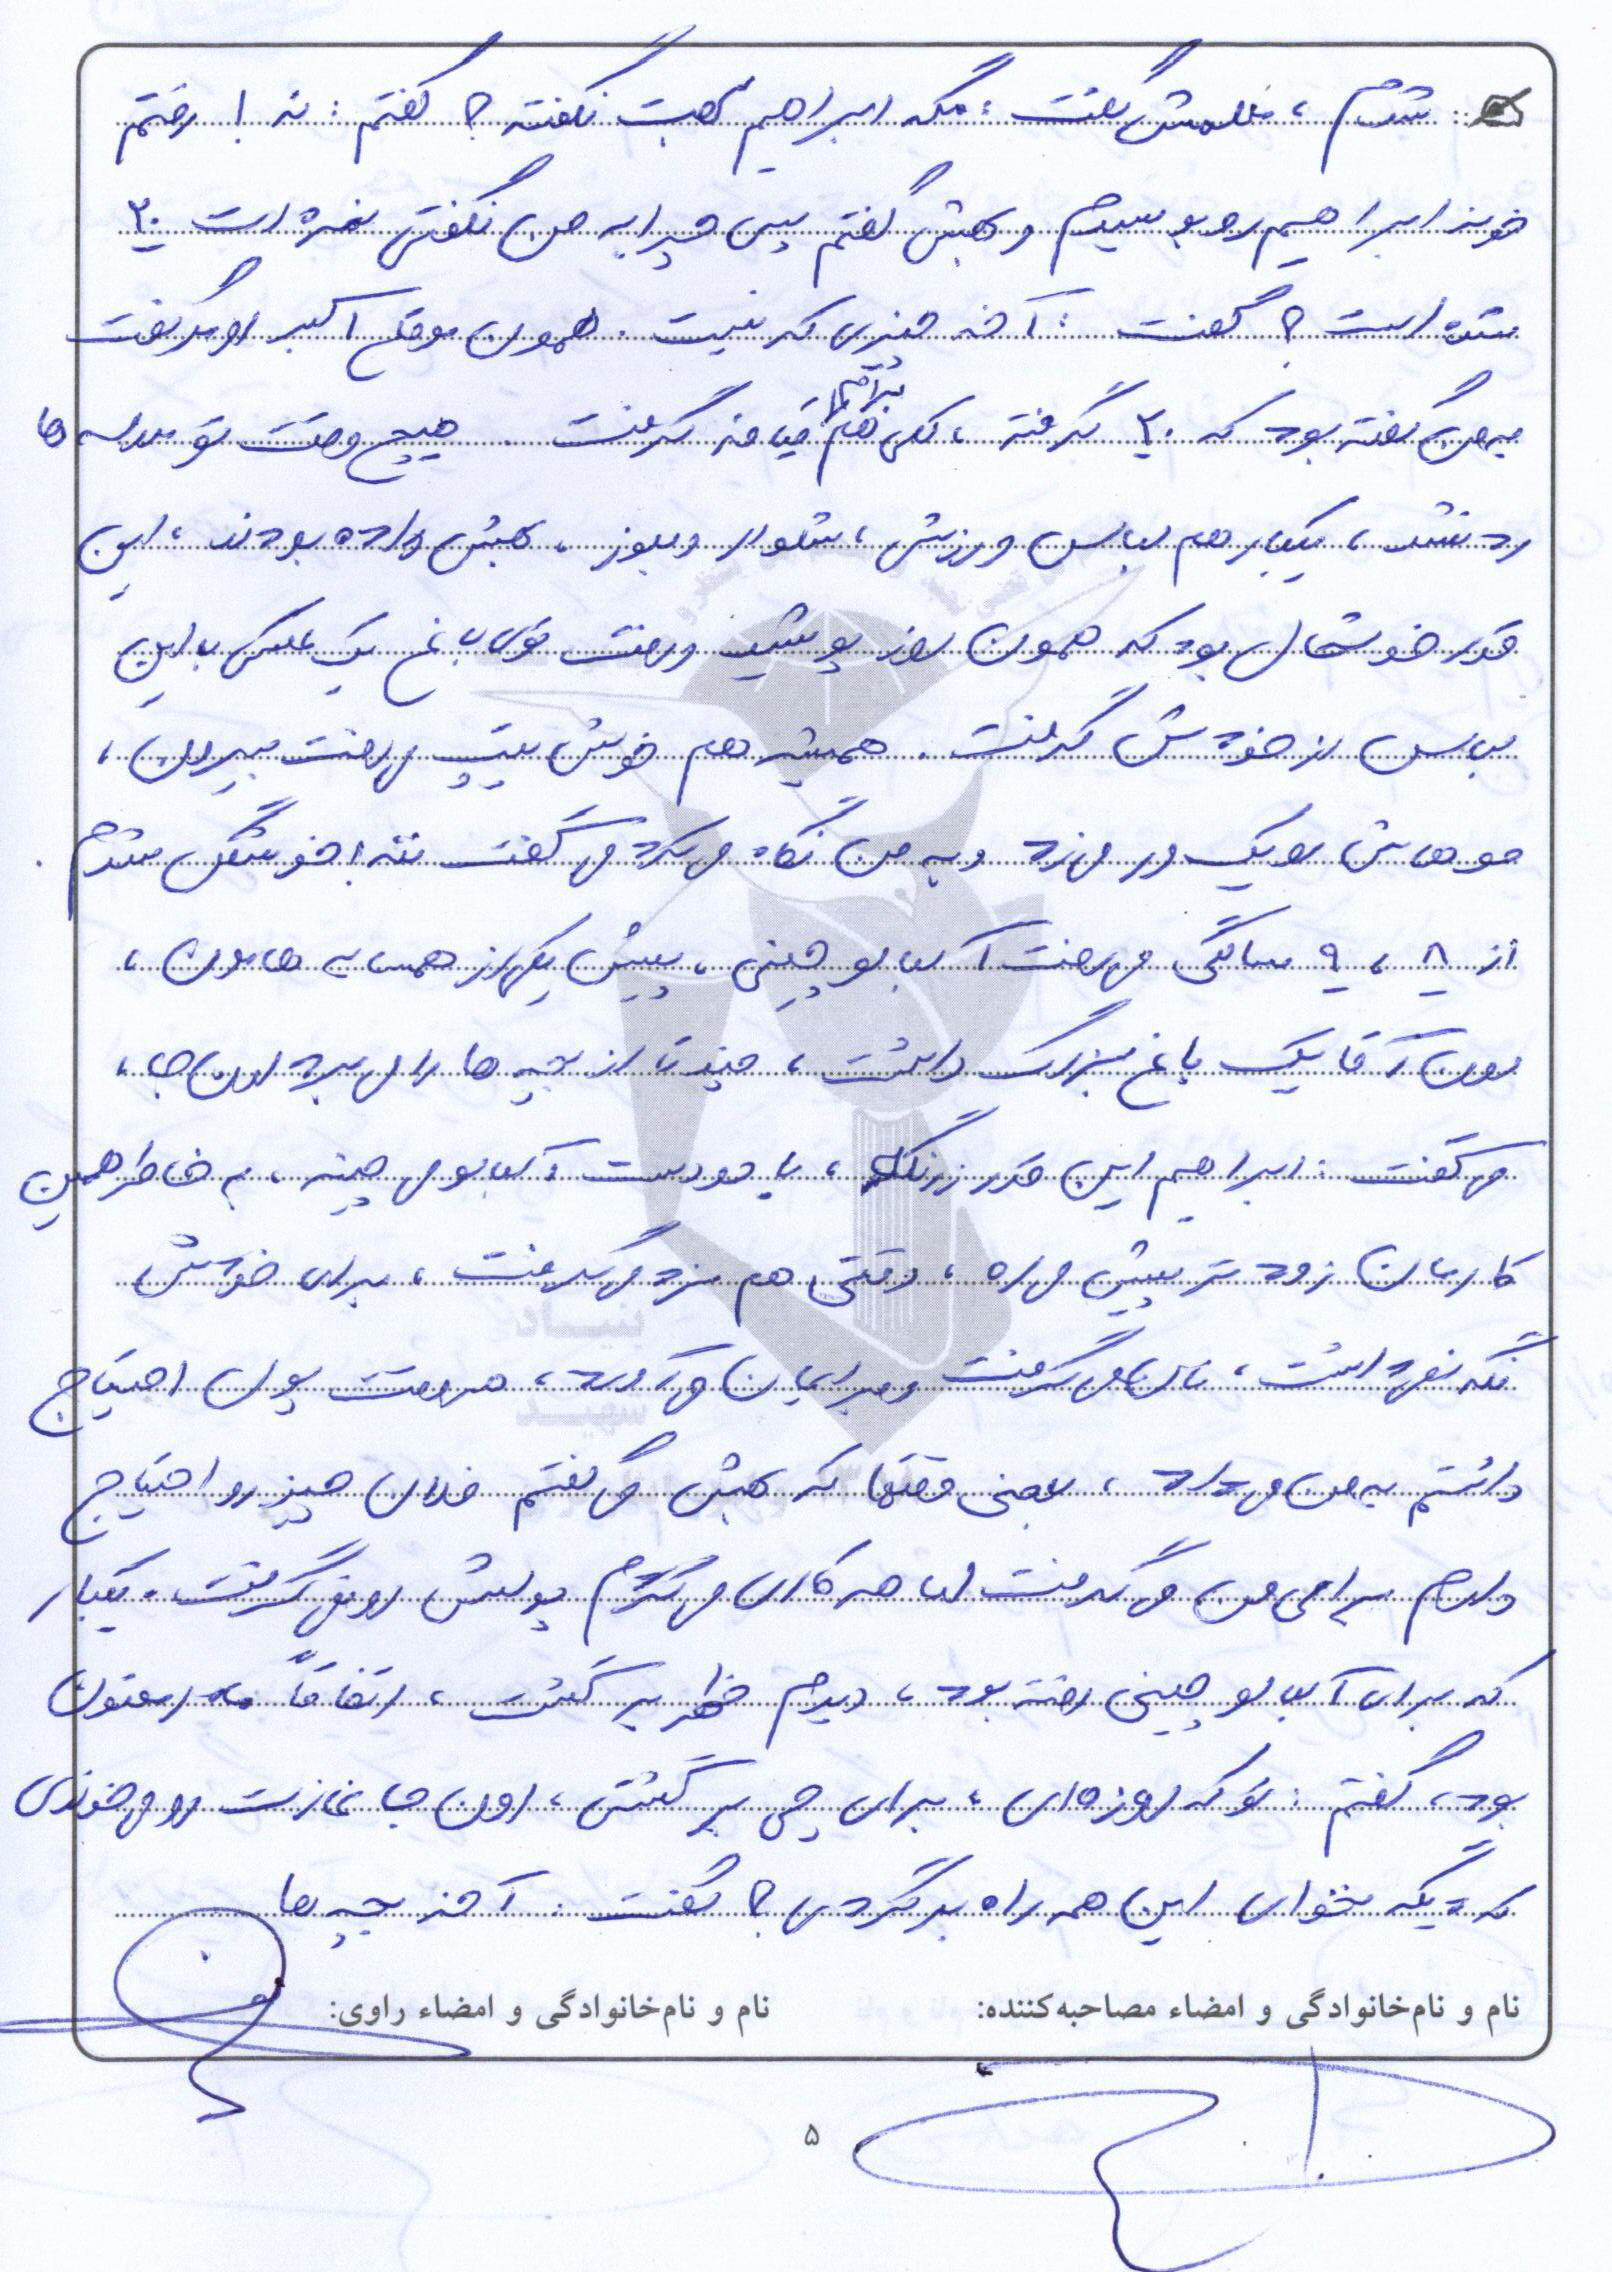 شدم ، معلمش گفت : مگه ابراهیم بهت نگفته ؟ گفتم : نه ! رفتم
خونه ابراهیم رو بوسیدم و بهش گفتم پس چرا به من نگفتی نمره ات ۲۰
شده است ؟ گفت : آخه چیزی که نیست . همون موقع اکبر اگر میگفت
به من گفته بود که ۲۰ گرفته ، کلی هم برام قیافه گرفت . هیچ وقت تو مدرسه ها
رد نشد ، یکبار هم لباس ورزش ، شلوار و بلوز ، بهش داده بودند ، این
قدر خوشحال بود که همون روز پوشید و رفت توی باغ یک عکس با این
لباس از خودش گرفت . همیشه هم خوش تیپ می رفت بیرون ،
موهاش رو یک ور می زد و به من نگاه می کرد می گفت ننه ! خوشگل شدم .
از ۸ ، ۹ سالگی می رفت آلبالو چینی ، پیش یکی از همسایه هامون ،
اون آقا یک باغ بزرگ داشت ، چند تا از بچه ها را می برد اون جا ،
می گفت : ابراهیم این قدر زرنگه ، با دو دست آلبالو می چینه ، به خاطر همین
کارمان زودتر پیش می ره ، وقتی هم مزد می گرفت ، برای خودش
نگه نمی داشت ، نان می گرفت و برایمان می آورد ، هر وقت پول احتیاج
داشتم به من می داد ، بعضی وقتها که بهش می گفتم فلان چیز رو احتیاج
دارم برای من می گرفت اما هر کاری می کردم پولش رو نمی گرفت . یکبار
که برای آلبالو چینی رفته بود ، دیدم ظهر برگشت ، اتفاقاً ماه رمضون
بود ، گفتم : تو که روزه ای ، برای چی برگشتی ، اون جا نمازت رو می خوندی
که دیگه نخوای این همه راه برگردی ؟ گفت : آخه بچه ها
نام و نام‌خانوادگی و امضاء مصاحبه‌کننده:
نام و نام‌خانوادگی و امضاء راوی:
۵